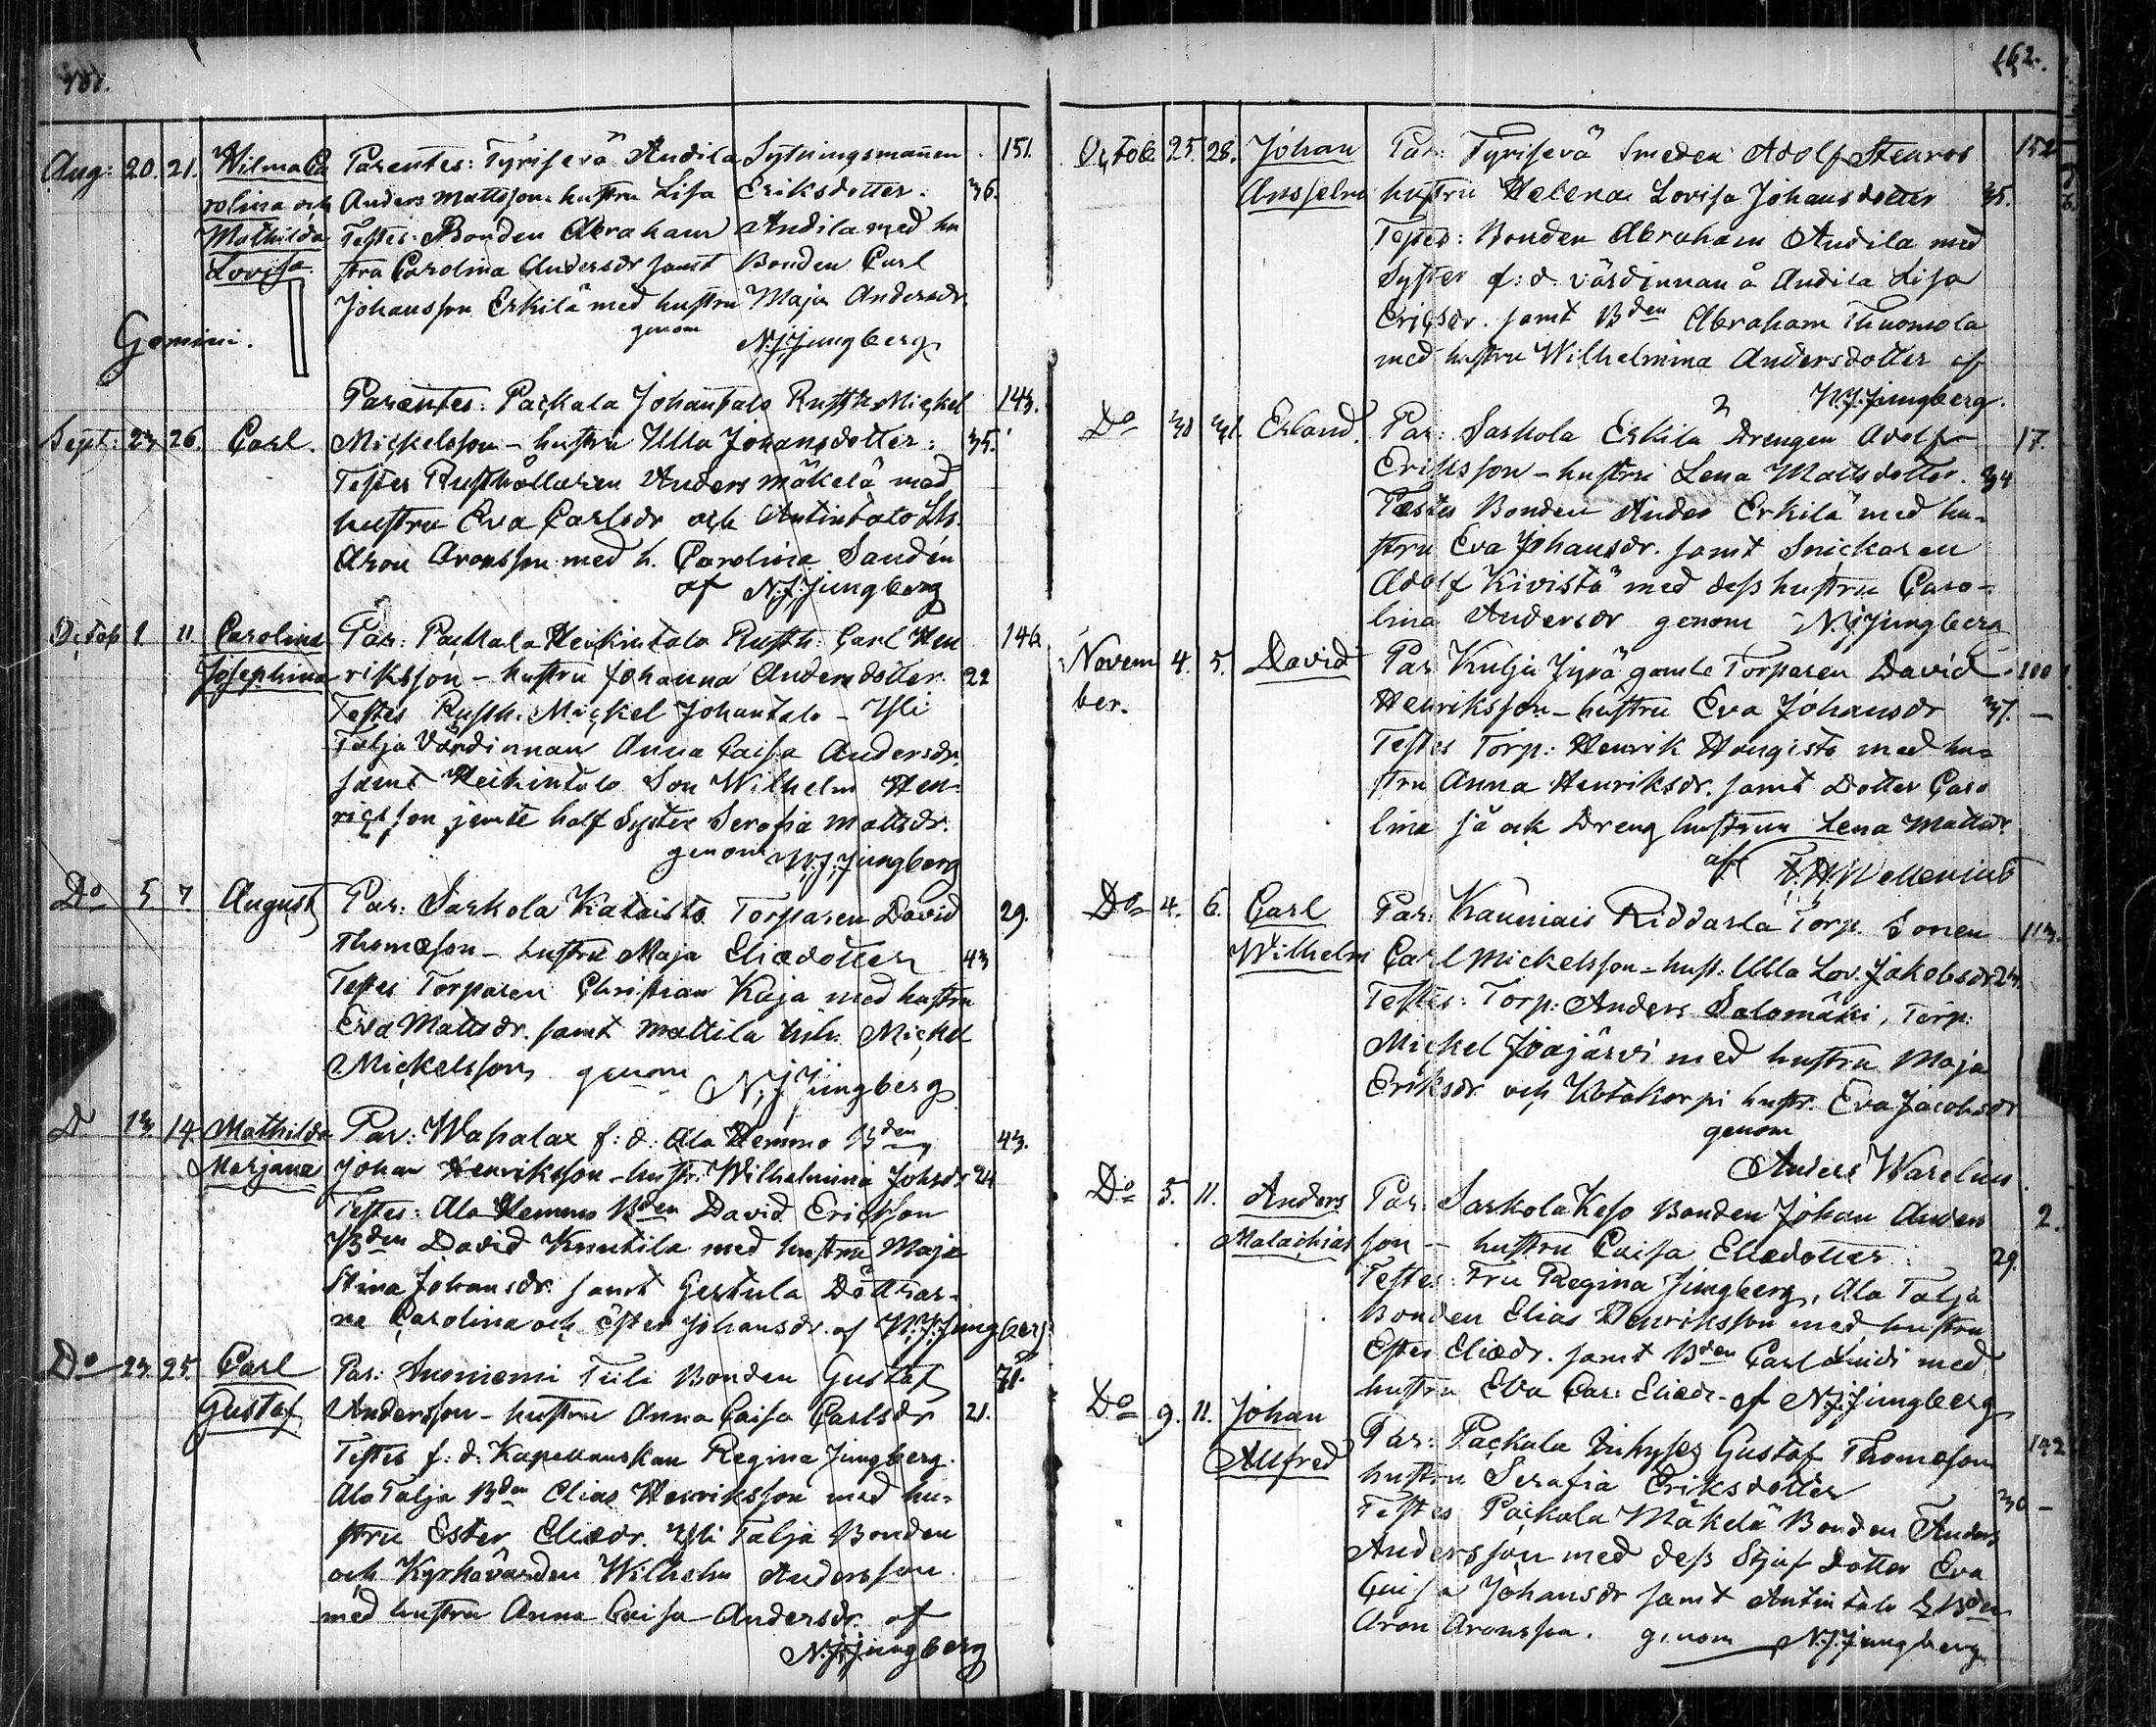 161.
Aug: 20. 21. Wilma Ca Parentes: Tyrisevä Andila Sytningsmannen 151.
rolina och Anders Mattsson hustru Lisa Eriksdotter. 36.
Mathilda Testes: Bonden Abraham Andila med hu
Lovisa. stru Carolina Andersdr samt Bonden Carl
Johansson Erkilä med hustru Maja Andersdr
Gemini. genom N.J. Jungberg
Parentes: Packala Johantalo Rusth. Mickel 143.
Sept: 23 26. Carl. Mickelsson - hustru Ulla Johansdotter: 35.
Testes Rusthållaren Anders Mäkelä med
hustru Eva Carlsdr och Antintalo
Aron Aronsson med h. Carolina Sandén
af N.J. Jungberg
Octob 1. 11 Carolina Par: Packala Heikintalo Rusth. Carl Hen 146
Josephina riksson - hustru Johanna Andersdotter 22
Testes Rusth. Mickel Johantalo - Yli
Talja Värdinnan Anna Caisa Andersdr.
samt Heikintalo Son Wilhelm Hen-
ricsson jemte half Syster Serafia Mattsdr.
genom N.J. Jungberg
Do 5 7. August Par: Sarkola Kataisto Torparen David 29.
Thomæson - hustru Maja Eliædotter 43
Testes Torparen Christian Kaja med hustru
Eva Mattsdr. samt Mattila Mickel
Mickelsson genom N.J. Jungberg
D 13 14. Mathilda Par: Wapalax f: d. Ala Hemmo Bden 43.
Marjana Johan Henriksson - hustr. Wilhelmina Johsdr 24
Testes: Ala Hemmo Bden David Ericsson
Bden David Knutila med hustru Maja
Stina Johansdr. samt Gertula Döttrar-
ne Carolina och Ester Johansdr. af N.J. Jungberg
Do 23. 25. Carl Par: Suoniemi Tiili Bonden Gustaf 71.
Gustaf Andersson - hustru Anna Caisa Carlsdr 21.
Testes f: d. Kapellanskan Regina Jungberg.
Ala Talja Bden Elias Henriksson med hu-
stru Ester Eliædr. Yli Talja Bonden
och Kyrkovärden Wilhelm Andersson
med hustru Anna Caisa Andersdr. af
N.J. Jungberg
162.
Octob. 25. 28. Johan Par: Tyrisevä Smeden Adolf Stenros 152
Ansselm hustru Helena Lovisa Johansdotter 35.
Testes: Bonden Abraham Andila med
Syster f: d. värdinnan å Andila Lisa
Ericsdr. samt Bden Abraham Thuomola
med hustru Wilhelmina Andersdotter af
N.J. Jungberg.
Do 30 31. Erland. Par: Sarkola Erkila Drengen Adolf 17.
Eriksson - hustru Lena Mattsdotter. 34
Testes Bonden Anders Erkilä med hu-
stru Eva Johansdr. samt Snickaren
Adolf Kivistö med dess hustru Caro-
lina Andersdr genom N.J. Jungberg
Novem 4. 5. David Par Kulju Jyrä gamle Torparen David 100
ber. Henriksson - hustru Eva Johansdr 37. -
Testes Torp: Henrik Hongisto med hu-
stru Anna Henriksdr. samt Dotter Caro
lina så ock Dreng hustrun Lena Mattsdr.
af F.H. Mellenius
Do 4. 6. Carl Par: Kauniais Riddarla Torp. Sonen 113.
Wilhelm Carl Mickelsson - hust: Ulla Lov. Jakobsdr 24.
Testes: Torp: Anders Salomäki, Torp:
Mickel Joajärvi med hustru Maja
Eriksdr och Kotakorpi hustr. Eva Jacobsdr
genom
Anders Warelius.
Do 5. 11. Anders Par: Sarkola Keso Bonden Johan Anders 2.
Malachias son - hustru Caisa Eliædotter: 29.
Testes: Fru Regina Jungberg, Ala Talja
Bonden Elias Henriksson med hustru
Ester Eliædr. samt Bden Carl med
hustru Eva Car: Eliædr. af N.J. Jungberg
Do 9. 11. Johan Par: Packala Inhyses Gustaf Thomæson 142
Alfred hustru Serafia Eriksdotter 30 -
Testes Packala Mäkelä Bonden Anders
Andersson med dess Stjuf Dotter Eva
Caisa Johansdr samt Antintalo Bden
Aron Aronsson. genom N.J. Jungberg